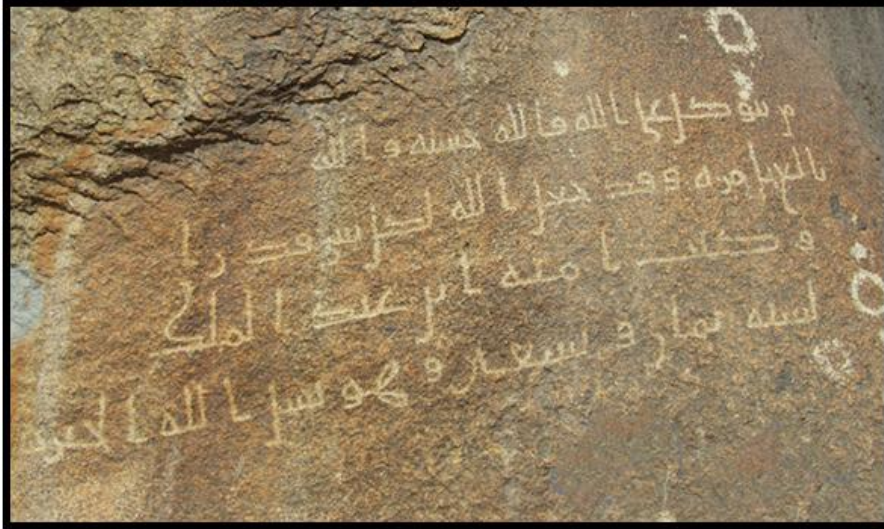 من يتوكل على الله فالله حسبه والله
بالغ امره وقد جعل الله لكل شي قدرا
وكتب اميه ابن عبد الملك
لسنه ثمان وتسعين وهو يسل الله الجنه